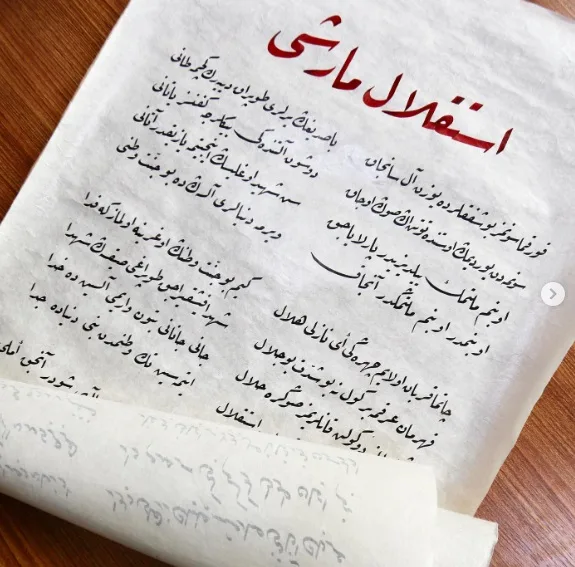 استقلال مارشى
قورقما سونمز بو شفقلرده یوزن آل سانجاق
سونمەدن یوردمڭ اوستنده توتن اڭ صوڭ اوجاق
او بنم ملتمڭ ییلدیزیدر پارلایاجق
او بنمدر او بنم ملتمڭدر آنجاق
چاتما قربان اولایم چهره‌ڭى اى نازلى هلال
قهرمان عرقمه بر گول نه بو شدت بو جلال
دوکولن قانلریمز صوڭره حلال
استقلال
باصدیغڭ یرلرى طوپراق دییەرك کچمه طانى
دوشون آلتنده‌کى بیڭلرجه کفنسز یاتانى
سن شهید اوغلیسڭ اینجیتمه یازیقدر آتاڭى
ویرمه دنیالرى آلسەڭ ده بو جنت وطنى
کیم بو جنت وطنڭ اوغرینه اولماز که فدا
شهدا فیشقیراجق طوپراغى صیقسەڭ شهدا
جانى جانانى بتون واریمى آلسین ده خدا
ایتمەسین تك وطنمدن بنى دنیاده جدا
شودر آنجق املى